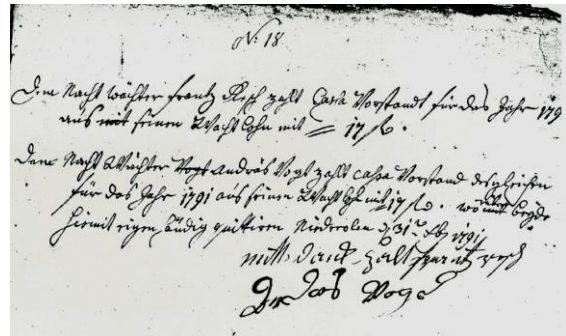 No. 18
Dem Nacht wächter frantz Resch zahlt Cassa Vorstandt für das Jahr 179
aus mit seinen Wacht Lohn mit = 17 f
Dem Nacht Wächter Vogt Andräs Vogt zahlt cassa Vorstand desgleichen
für das Jahr 1791 aus seinen Wacht Lohn mit 17 f. beyde
hiemit eigen händig quittiren Niederolm d 31te 1791
mitt danck zalt frantz resch
Vogt